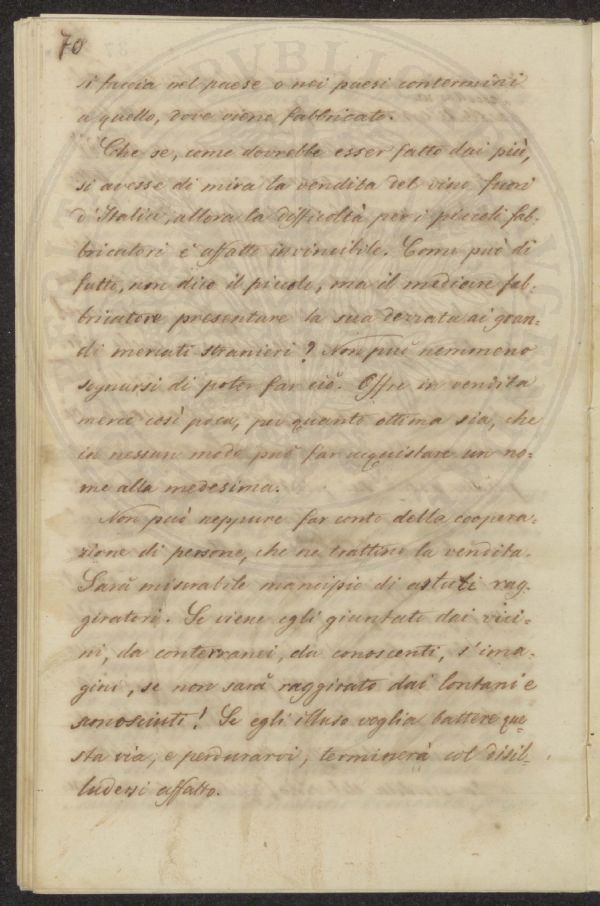 70
si faccia nel paese o nei paesi contermini
a quello, dove viene fabbricato.
Che se, come dovrebbe esser fatto dai più,
si avesse di mira la vendita del vino fuori
d'Italia, allora la difficoltà per i piccoli fab-
bricatori è affatto invincibile. Come può di
fatto, non dico il piccolo, ma il mediocre fab-
bricatore presentare la sua derrata ai gran-
di mercati stranieri? Non può nemmeno
sognarsi di poter far ciò. Offre in vendita
merce così poca, per quanto ottima sia, che
in nessun modo può far acquistare un no-
me alla medesima.
Non può neppure far conto della coopera-
zione di persone, che ne trattino la vendita.
Sarà miserabile mancipio di astuti rag-
giratori. Se viene egli giuntato dai vici-
ni, da conterranei, da conoscenti, s'ima-
gini, se non sarà raggirato dai lontani e
sconosciuti! Se egli illuso voglia battere que-
sta via, e perdurarvi, terminerà col disil-
ludersi affatto.